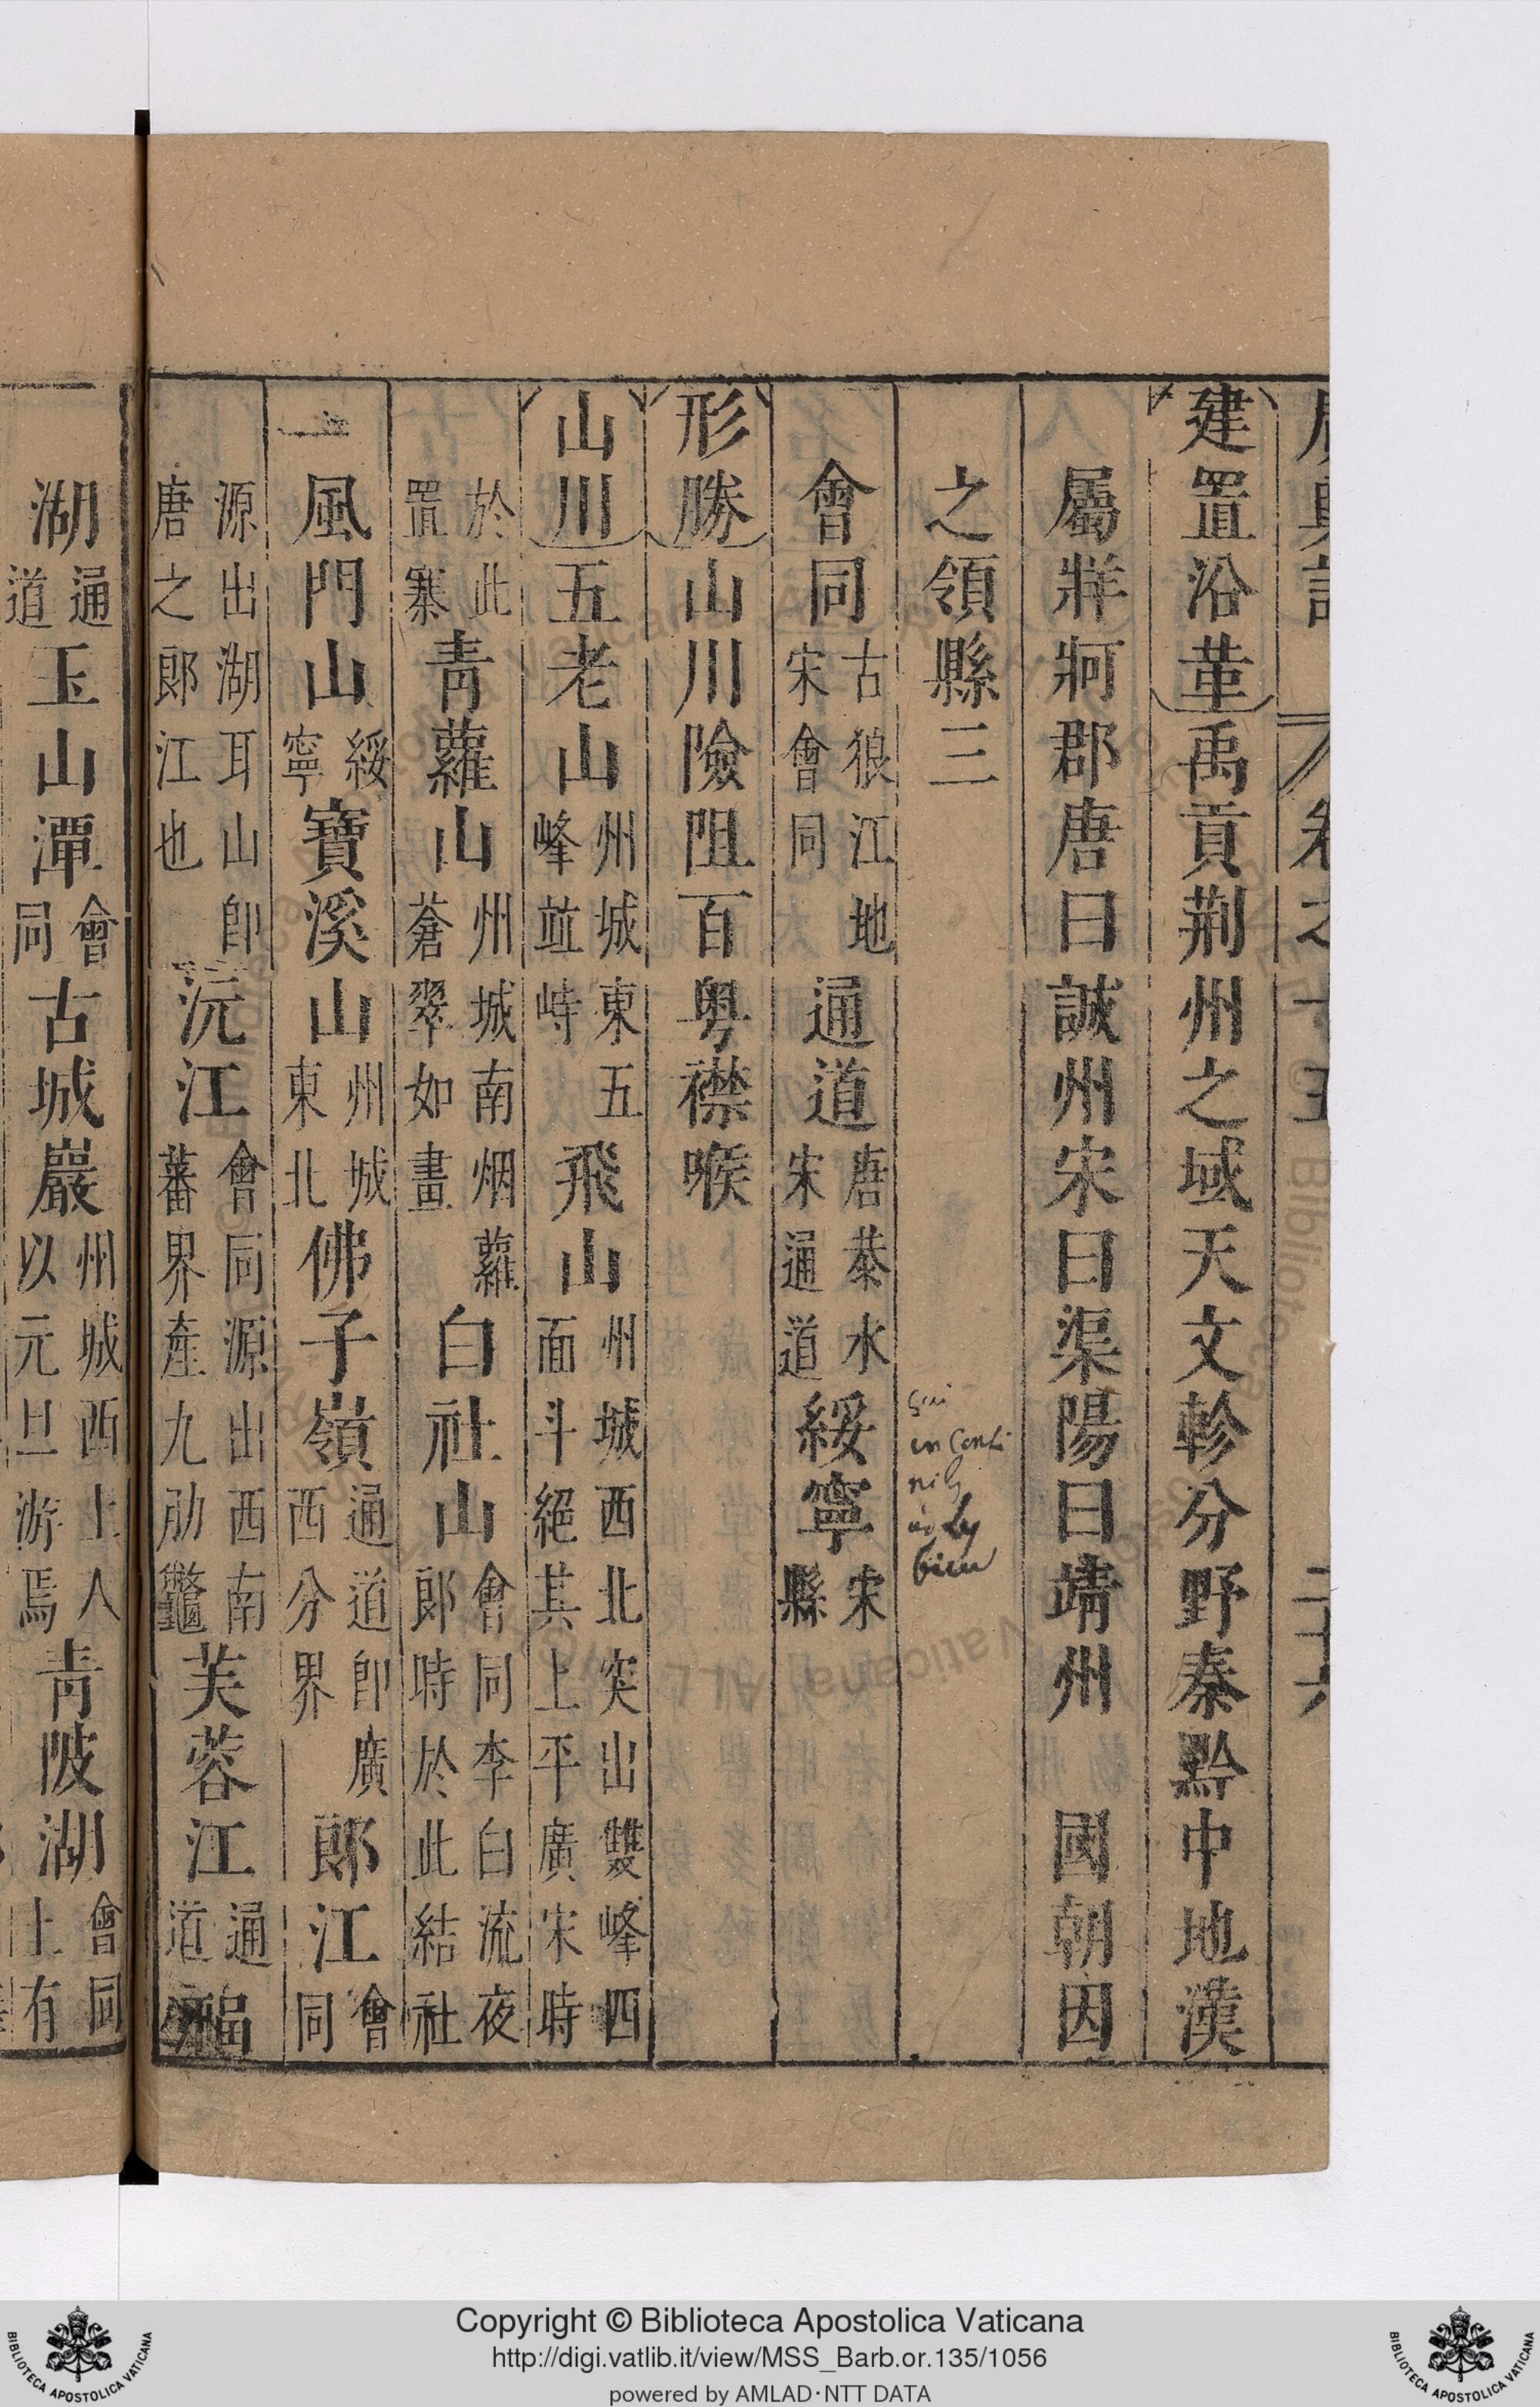 建置沿革禹貢荆州之域天文軫分野秦黔中地漢
屬牂牁郡唐曰誠州宋曰渠陽曰靖州 國朝因
之領縣三
會同古狼江地宋會同 通道唐恭水宋通道 綏寧宋縣
形勝山川險阻百粤襟喉
山川五老山州城東五峰竝峙 飛山州城西北突出雙峰四面斗絕其上平廣宋時
於此置寨 青蘿山州城南烟蘿蒼翠如畫 白社山會同李白流夜郎時於此結社
風門山綏寧 寶溪山州城東北 佛子嶺通道即廣西分界 郎江會同
源出湖耳山即唐之郎江也 沅江會同源出西南蕃界產九肋鼈 芙蓉江通道 福
湖通道 玉山潭會同 古城巖州城西土人以元旦游焉 青陂湖會同土有
Copyright © Biblioteca Apostolica Vaticana
http://digi.vatlib.it/view/MSS_Barb.or.135/1056
powered by AMLAD·NTT DATA
BIBLIOTECA APOSTOLICA VATICANA
BIBLIOTECA APOSTOLICA VATICANA